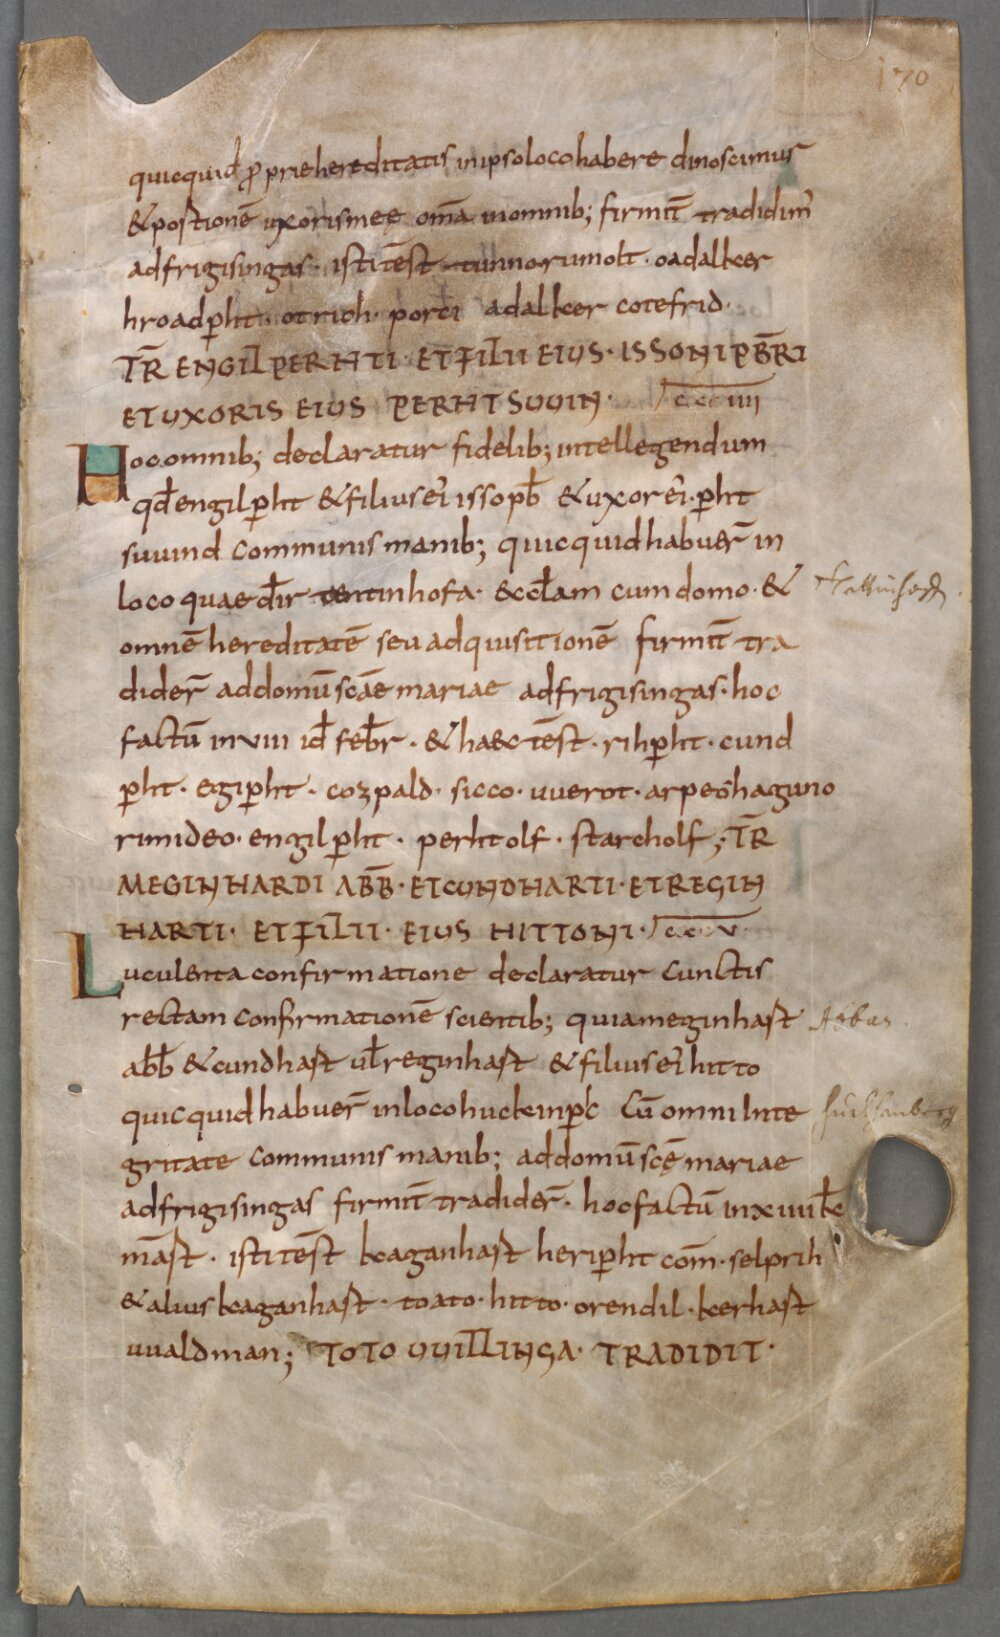 170
quicquid ꝓprie hereditatis in ipso loco habere dinoscimus
& postionē uxoris meę om̄a in omnib; firmit̄ tradidim̄
ad frigisingas · isti test̄ tunno rumolt · oadalker
hroadp̄ht · otrich · porci adalker cotefrid ·
TR̄ ENGILPERHTI · ET FILII EIUS · ISSONI PB̄RI
ET UXORIS EIUS PERHTSUUIN · ccciiii
Hoc omnib; declaratur fidelib; intellegendum
qđ engilp̄ht & filius ei isso pb̄ & uxor ei · p̄ht
suuind communis manib; quicquid habuer̄ in
loco quae dr̄ tentinhofa · eccłam cum domo · &
omnē hereditatē seu adquisitionē firmit̄ tra
dider̄ ad domū scāe mariae ad frigisingas · hoc
factū in viii iđ feb̄r · & haec test̄ · rihp̄ht · cund
p̄ht · egip̄ht · cozpald · sicco · uuerot · arpeo haguno
rimideo · engilp̄ht · perhtolf · starcholf ; TR̄
MEGINHARDI ABB̄ · ET CUNDHARTI · ET REGIN
HARTI · ET FILII · EIUS HITTONI · cccv ·
Luculenta confirmatione declaratur cunctis
rectam confirmationē scientib; quia meginhast
abb̄ & cundhast ul̄ reginhast & filius ei hitto
Abbas
quicquid habuer̄ in loco huckinp̄c Cū omni inte
gritate communis manib; ad domū scę̄ mariae
ad frigisingas firmit̄ tradider̄ · hoc factū in xiiii kł
māst · isti test̄ kaganhast herip̄ht com̄ · selprih
& alius kaganhast · toato · hitto · orendil · kerhast
uualdman ; TOTO UUILLINGA · TRADIDIT ·